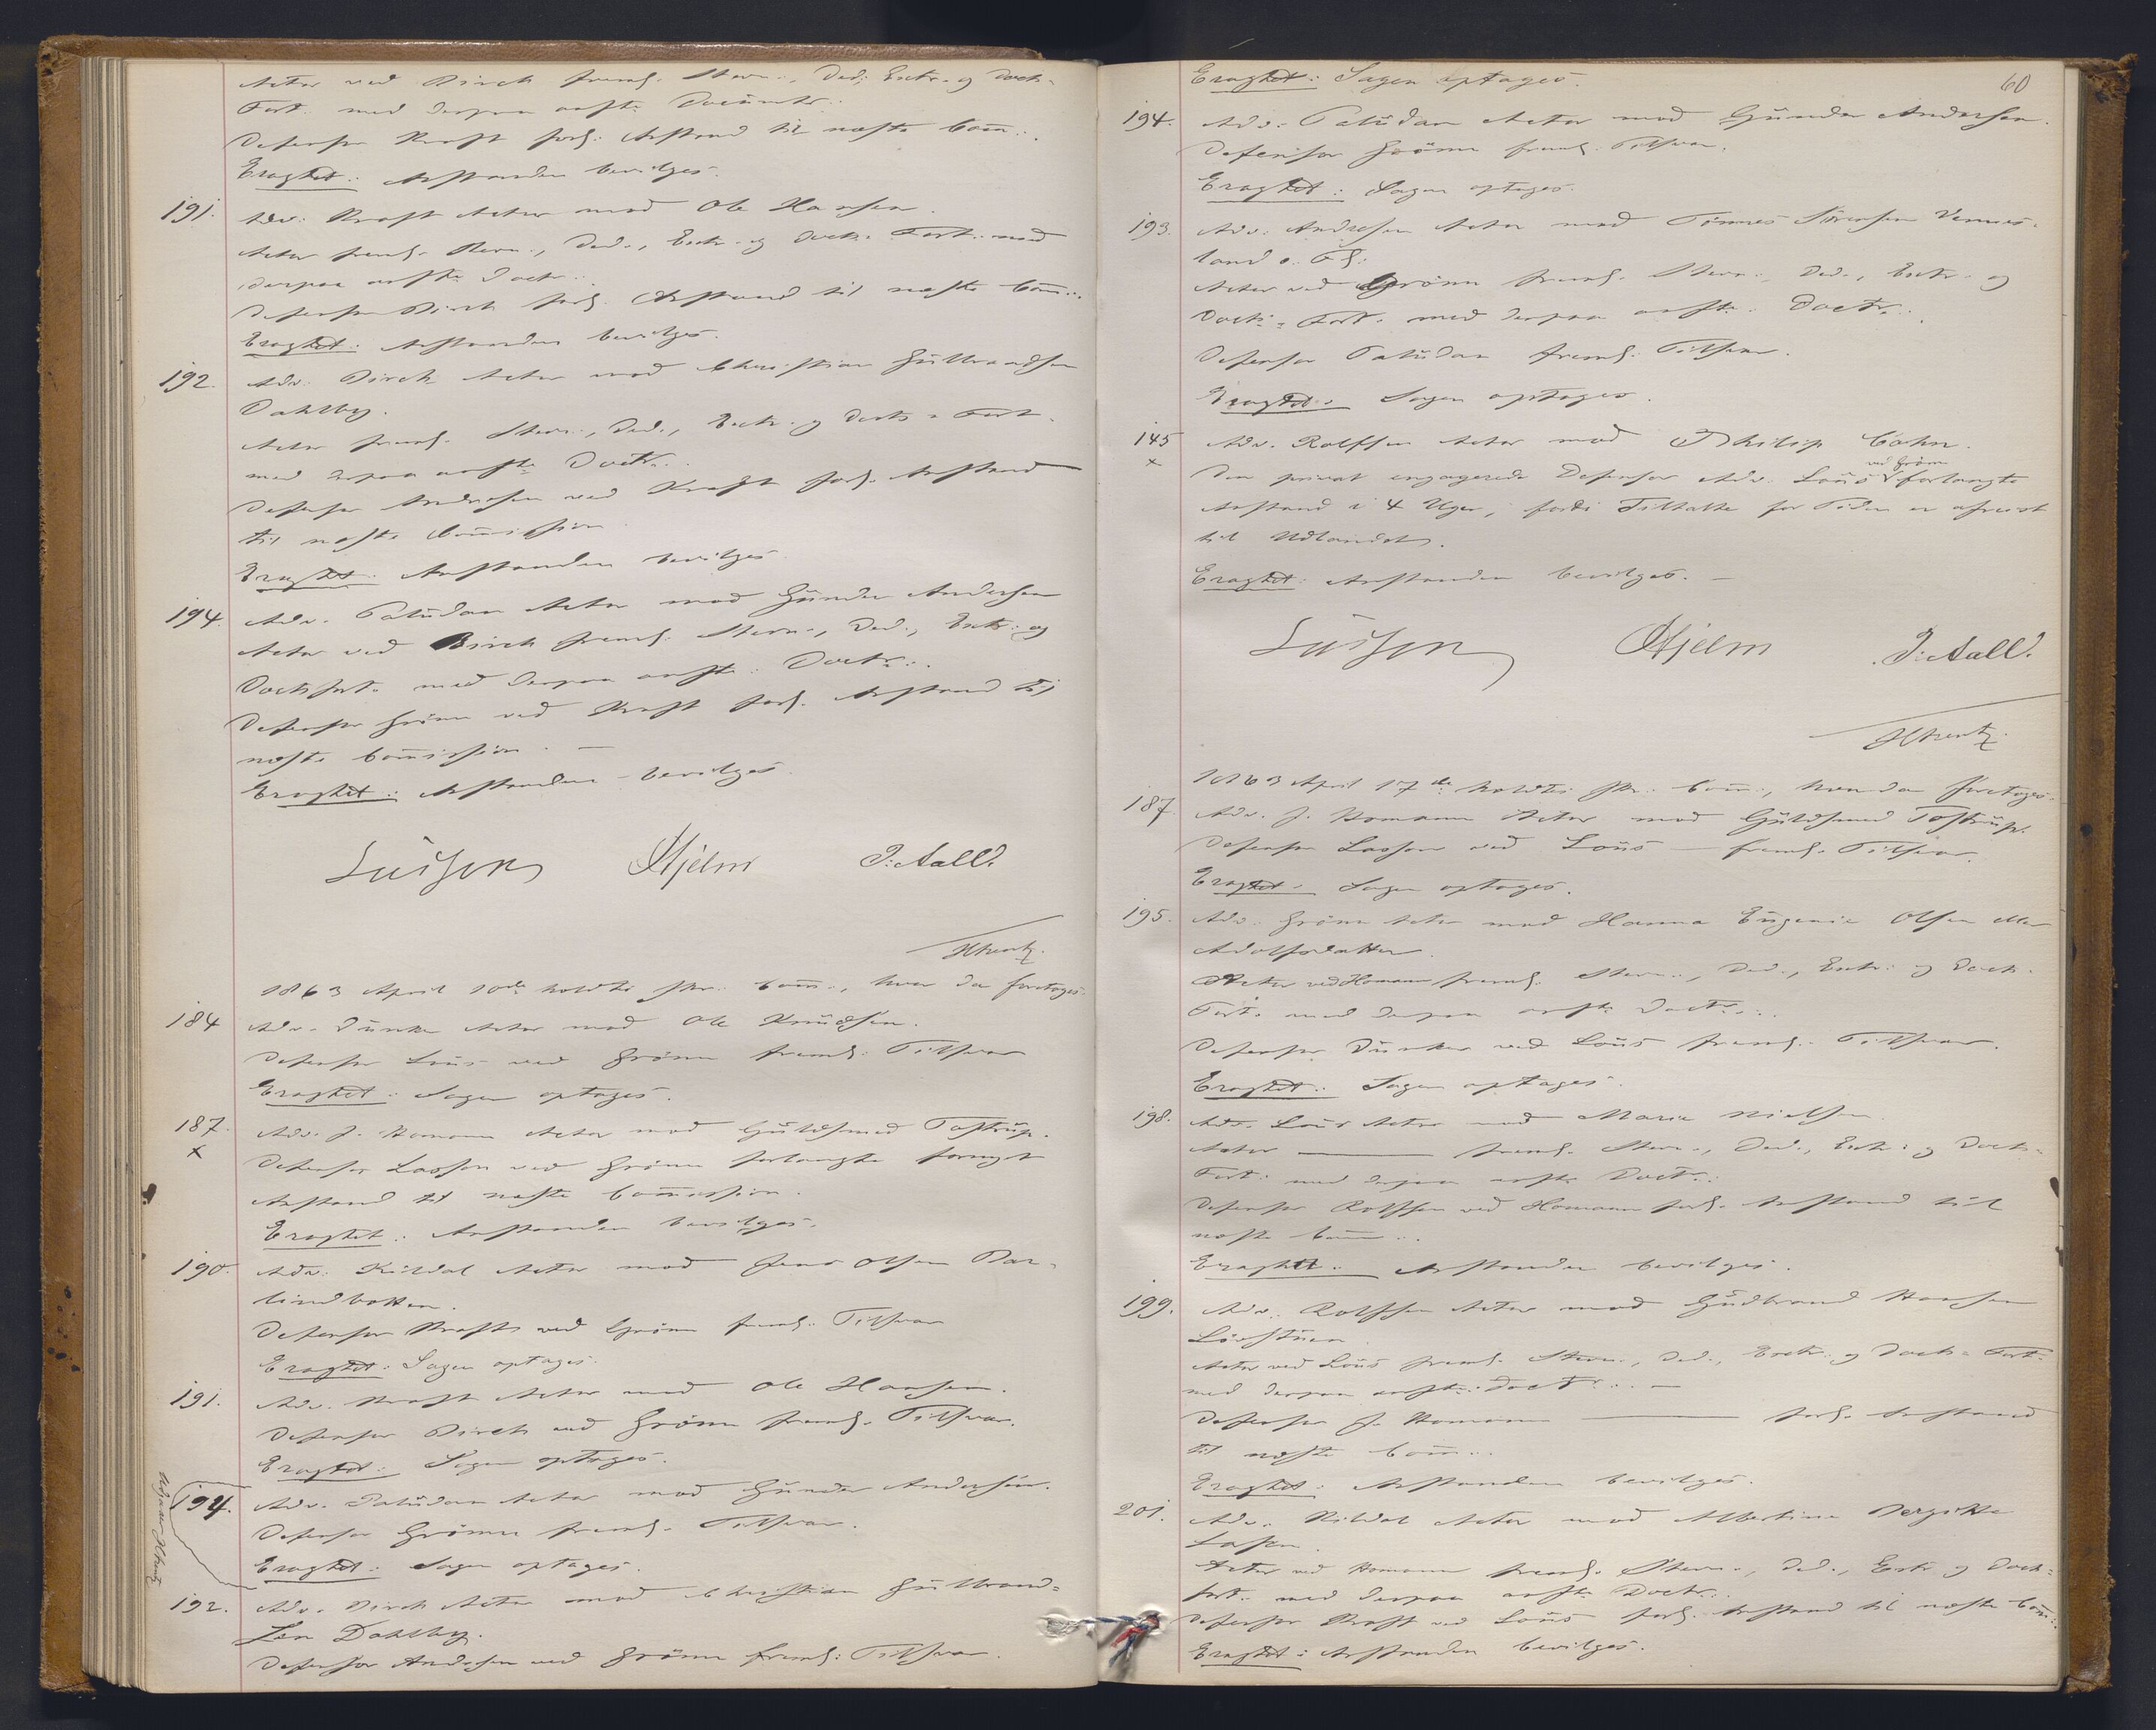 Actor ved Birch freml. Stevn., Ded., Extr. og Doct.
Fort. med derpaa anførte Documenter.
Defensor Kraft forl. Anstand til næste Comm.
Eragtet: Anstanden bevilges.
191. Adv. Kraft Actor mod Ole Hansen.
Actor freml. Stevn., Ded., Extr. og Doct. Fort. med
derpaa anførte Doctr.
Defensor Birch forl. Anstand til næste Comm.
Eragtet: Anstanden bevilges.
192. Adv. Birch Actor mod Christian Gulbrandsen
Dahlby.
Actor freml. Stevn., Ded., Extr. og Doct. Fort.
med derpaa anførte Doctr.
Defensor Andresen ved Kraft forl. Anstand
til næste Commission
Eragtet: Anstanden bevilges
194. Adv. Paludan Actor mod Gunder Andersen
Actor ved Birch freml. Stevn., Ded., Extr. og
Doctsfort. med derpaa anførte Doctr.
Defensor Grönn ved Kraft forl. Anstand til
næste Commission. —
Eragtet: Anstanden bevilges.
Hjelm J: Aall.
1863 April 10de holdtes Comm., hvor da foretages
184 Adv. Dunker Actor mod Ole Knudsen.
Defensor Lous ved Grönn freml. Tilsvar
Eragtet: Sagen optages.
187. Adv. J. Homann Actor mod Guldsmed Tostrup.
x
Defensor Lasson ved Grönn forlangte fornyet
Anstand til næste Commission.
Eragtet: Anstanden bevilges.
190. Adv. Kildal Actor mod Jens Olsen
Defensor Kraft ved Grönn freml. Tilsvar
Eragtet: Sagen optages.
191. Adv. Kraft Actor mod Ole Hansen.
Defensor Birch ved Grönn freml. Tilsvar.
Eragtet: Sagen optages.
194. Adv. Paludan Actor mod Gunder Andersen.
Defensor Grönn freml. Tilsvar.
Eragtet: Sagen optages.
192. Adv. Birch Actor mod Christian Gulbrand=
sen Dahlby.
Defensor Andresen ved Grönn freml: Tilsvar.
60
Eragtet: Sagen optages.
194. Adv. Paludan Actor mod Gunder Andersen.
Defensor Grönn freml. Tilsvar.
Eragtet: Sagen optages.
193. Adv. Andresen Actor mod Tönnes Sörensen
land o. Fl:
Actor ved Grönn freml. Stevn., Ded., Extr. og
Doct. Fort. med derpaa anførte Doctr.
Defensor Paludan freml. Tilsvar.
Eragtet: Sagen optages.
145 Adv. Rolfsen Actor mod Philip Cohn.
x
ved Grönn
Den privat engagerede Defensor Adv. Lous forlangte
Anstand i 4 Uger, fordi Tiltalte for Tiden er afreist
til Udlandet.
Eragtet: Anstanden bevilges. —
Hjelm J: Aall.
1863 April 17de holdtes Comm., hvor da foretages
187. Adv. J. Homann Actor mod Guldsmed Tostrup.
Defensor Lasson ved Lous — freml. Tilsvar.
Eragtet: Sagen optages.
195. Adv. Grönn Actor mod Hanna Eugenie Olsen eller
Adolfsdatter.
Actor ved Homann freml. Stevn., Ded., Extr. og Doct.
Fort. med derpaa anførte Doctr.
Defensor Dunker ved Lous freml. Tilsvar.
Eragtet: Sagen optages.
198. Adv. Lous Actor mod Maria Nielsen
Actor — freml. Stevn., Ded., Extr. og Doct.
Fort. med derpaa anførte Doctr.
Defensor Rolfsen ved Homann forl. Anstand til
næste Comm.
Eragtet: Anstanden bevilges.
199. Adv. Rolfsen Actor mod Gudbrand Hansen
Actor ved Lous freml. Stevn., Ded., Extr. og Doct= Fort.
med derpaa anførte Doctr. —
Defensor J. Homann — forl. Anstand
til næste Comm.
Eragtet: Anstanden bevilges.
201. Adv. Kildal Actor mod Albertine Bergitte
Actor ved Homann freml. Stevn., Ded., Extr. og Doct=
fort. med derpaa anførte Doctr.
Defensor Kraft ved Lous forl. Anstand til næste Comm.
Eragtet: Anstanden bevilges.